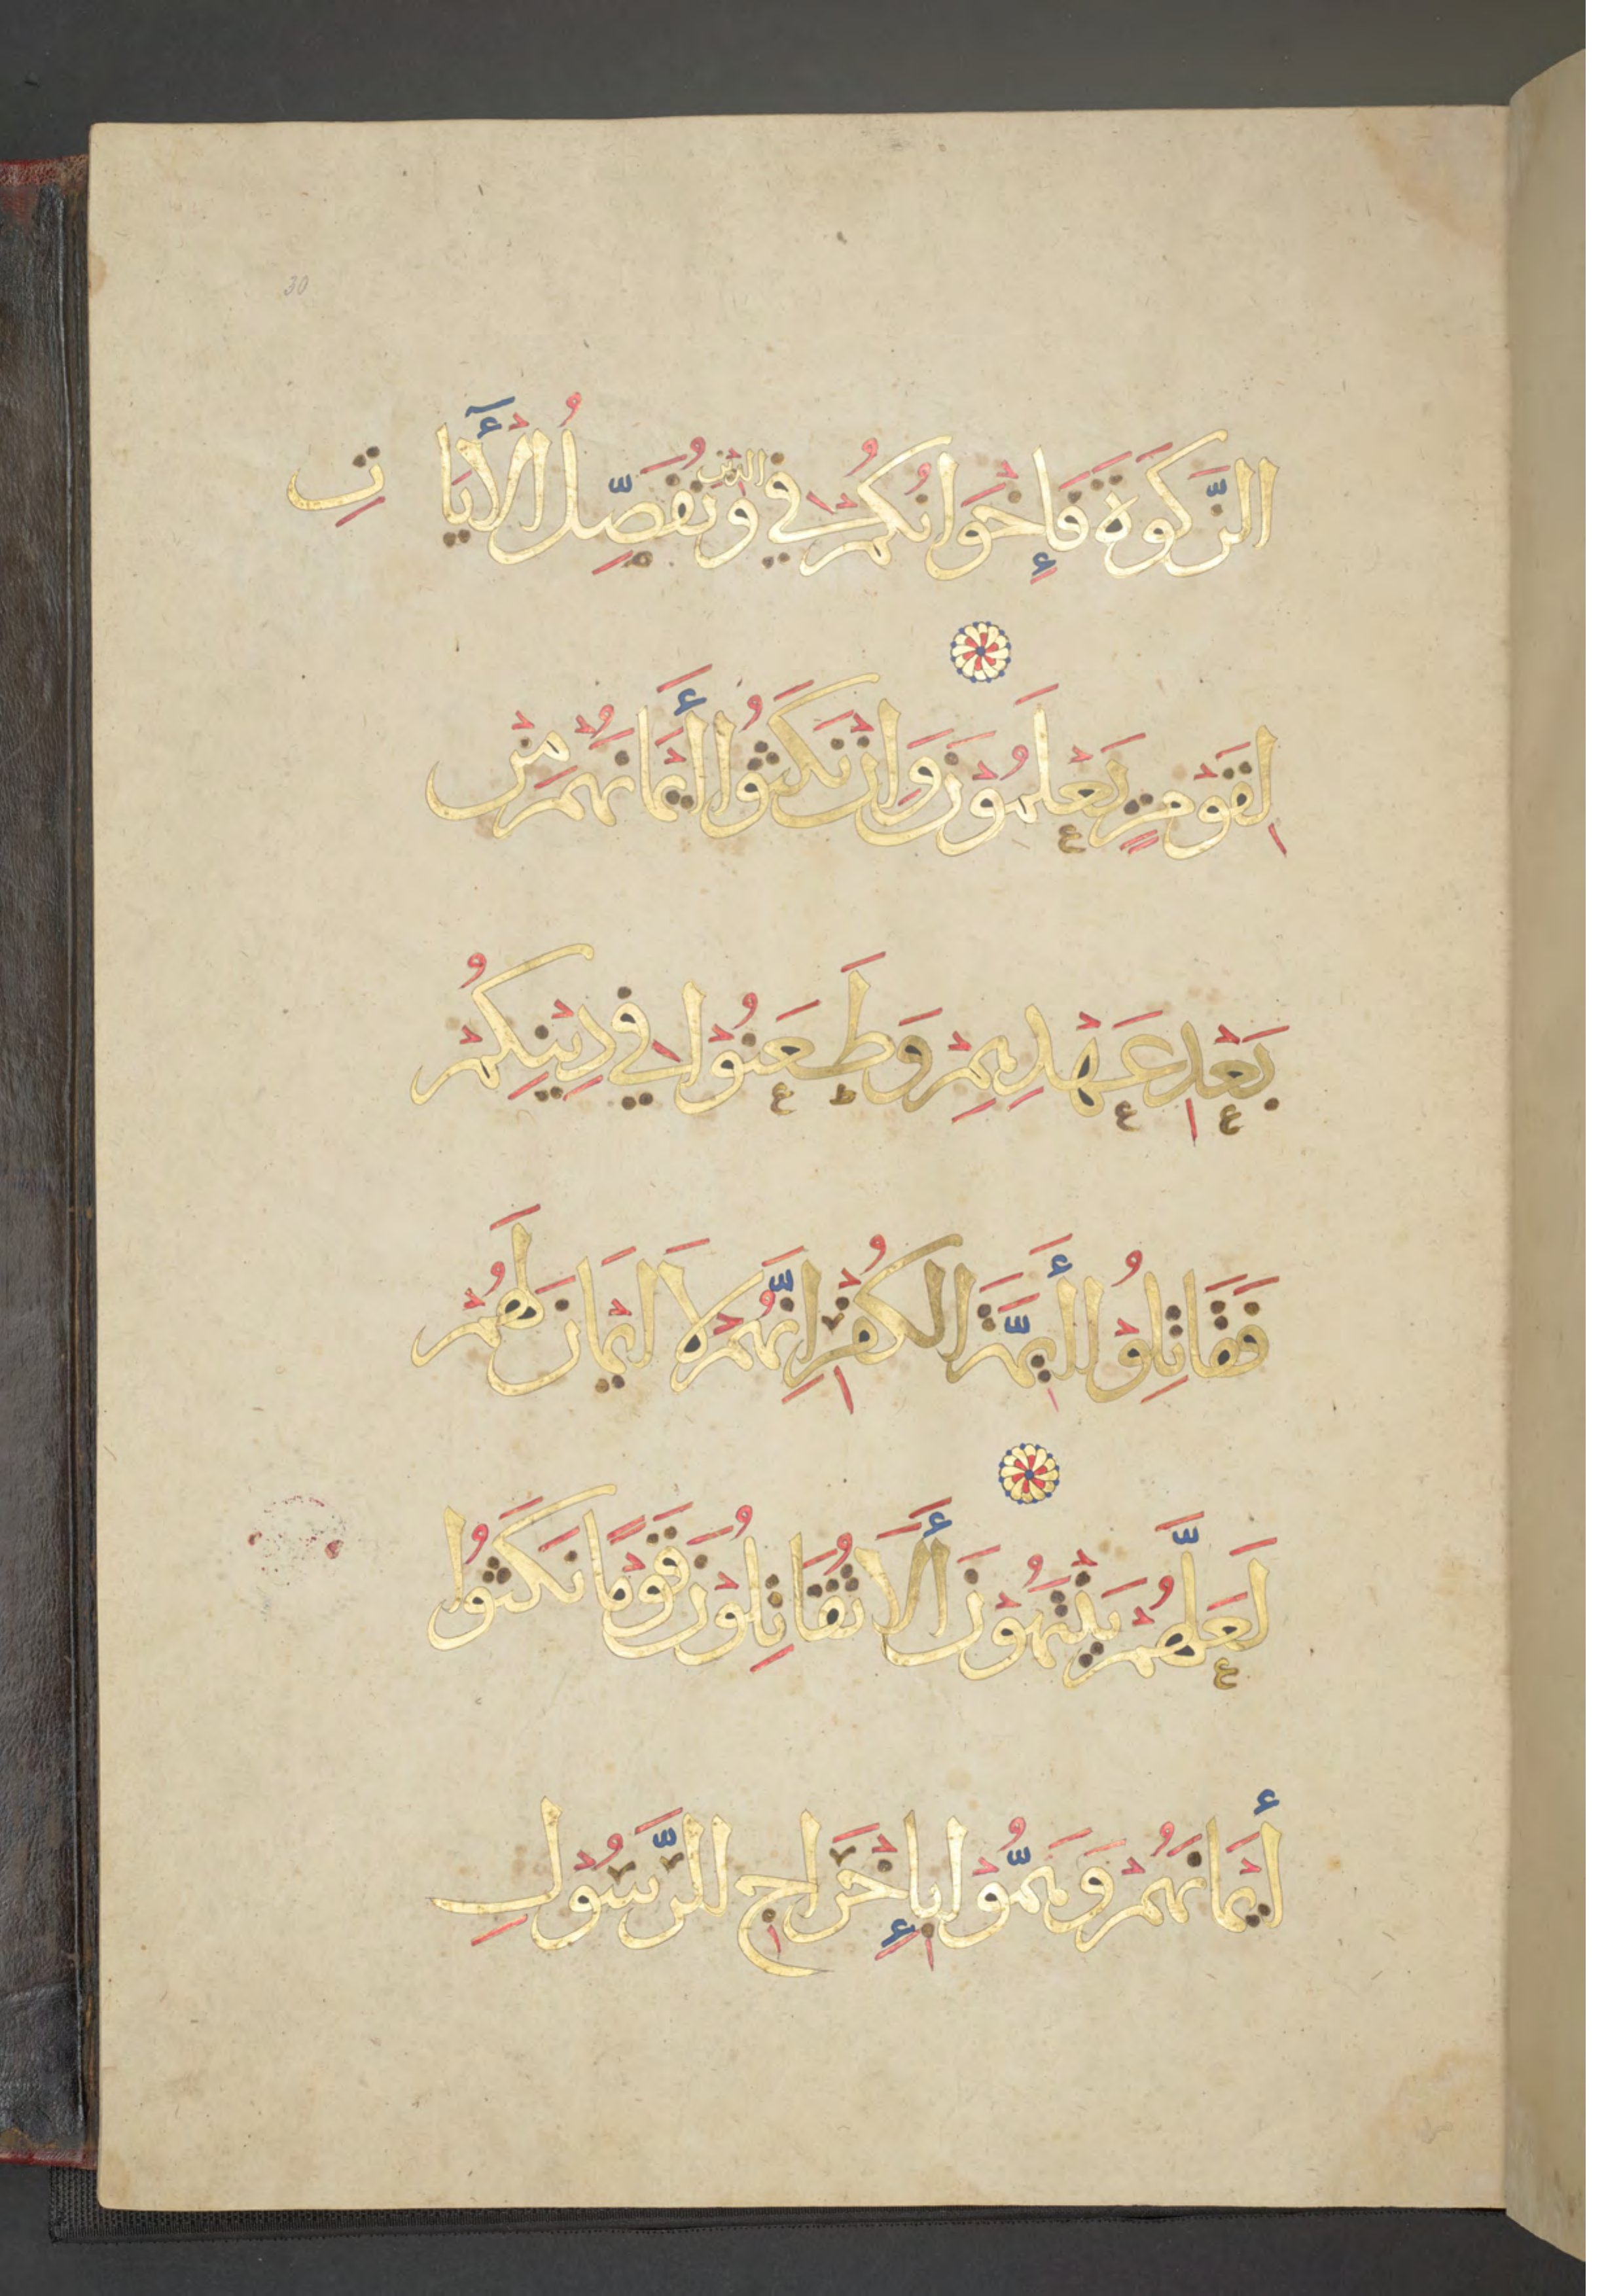 30
الزَّكَوةَ فَإِخْوَانُكُمْ فِي الدِّينِ وَنُفَصِّلُ الْأَيَاتِ
لِقَوْمٍ يَعْلَمُوْنَ وَاِنْ نَكَثُوا أَيْمَانَهُمْ مِنْ
بَعْدِ عَهْدِهِمْ وَطَعَنُوْا فِي دِيْنِكُمْ
فَقَاتِلُوْا أَيِمَّةَ الْكُفْرِ اِنَّهُمْ لَا اَيْمَانَ لَهُمْ
لَعَلَّهُمْ يَنْتَهُوْنَ أَلَا تُقَاتِلُوْنَ قَوْمًا نَكَثُوا
أَيْمَانَهُمْ وَهَمُّوْا بِإِخْرَاجِ الرَّسُوْلِ